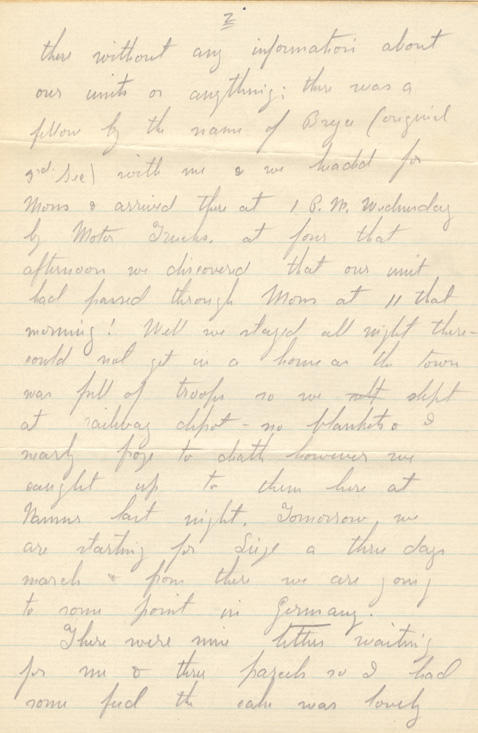 2
there without any information about
our units or anything; there was a
fellow by the name of Bryce (original
3rd Sec) with me & we headed for
Mons & arrived there at 1 P.M. Wednesday
by Motor Trucks. at four that
afternoon we discovered that our unit
had passed through Mons at 11 that
morning! Well we stayed all night there -
could not get in a home as the town
was full of troops so we slept
at railway depot - no blankets & I
nearly froze to death however we
caught up to them here at
Namur last night. Tomorrow, we
are starting for Liege a three days
march & from there we are going
to some point in Germany.
There were nine letters waiting
for me & three parcels so I had
some feed the cake was lovely